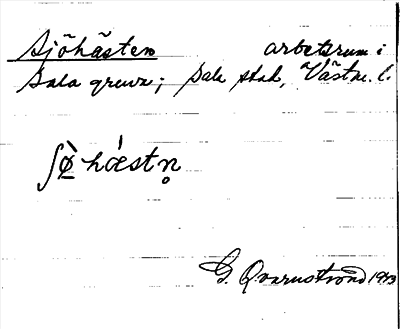 Sjöhästen arbetsrum i
Sala gruva; Sala stad, Västm. l.
ʃø̀ hǽstn̥
G. Qvarnström 1913